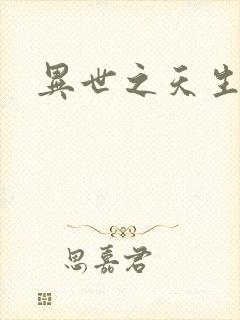 異世之天生
思嘉君